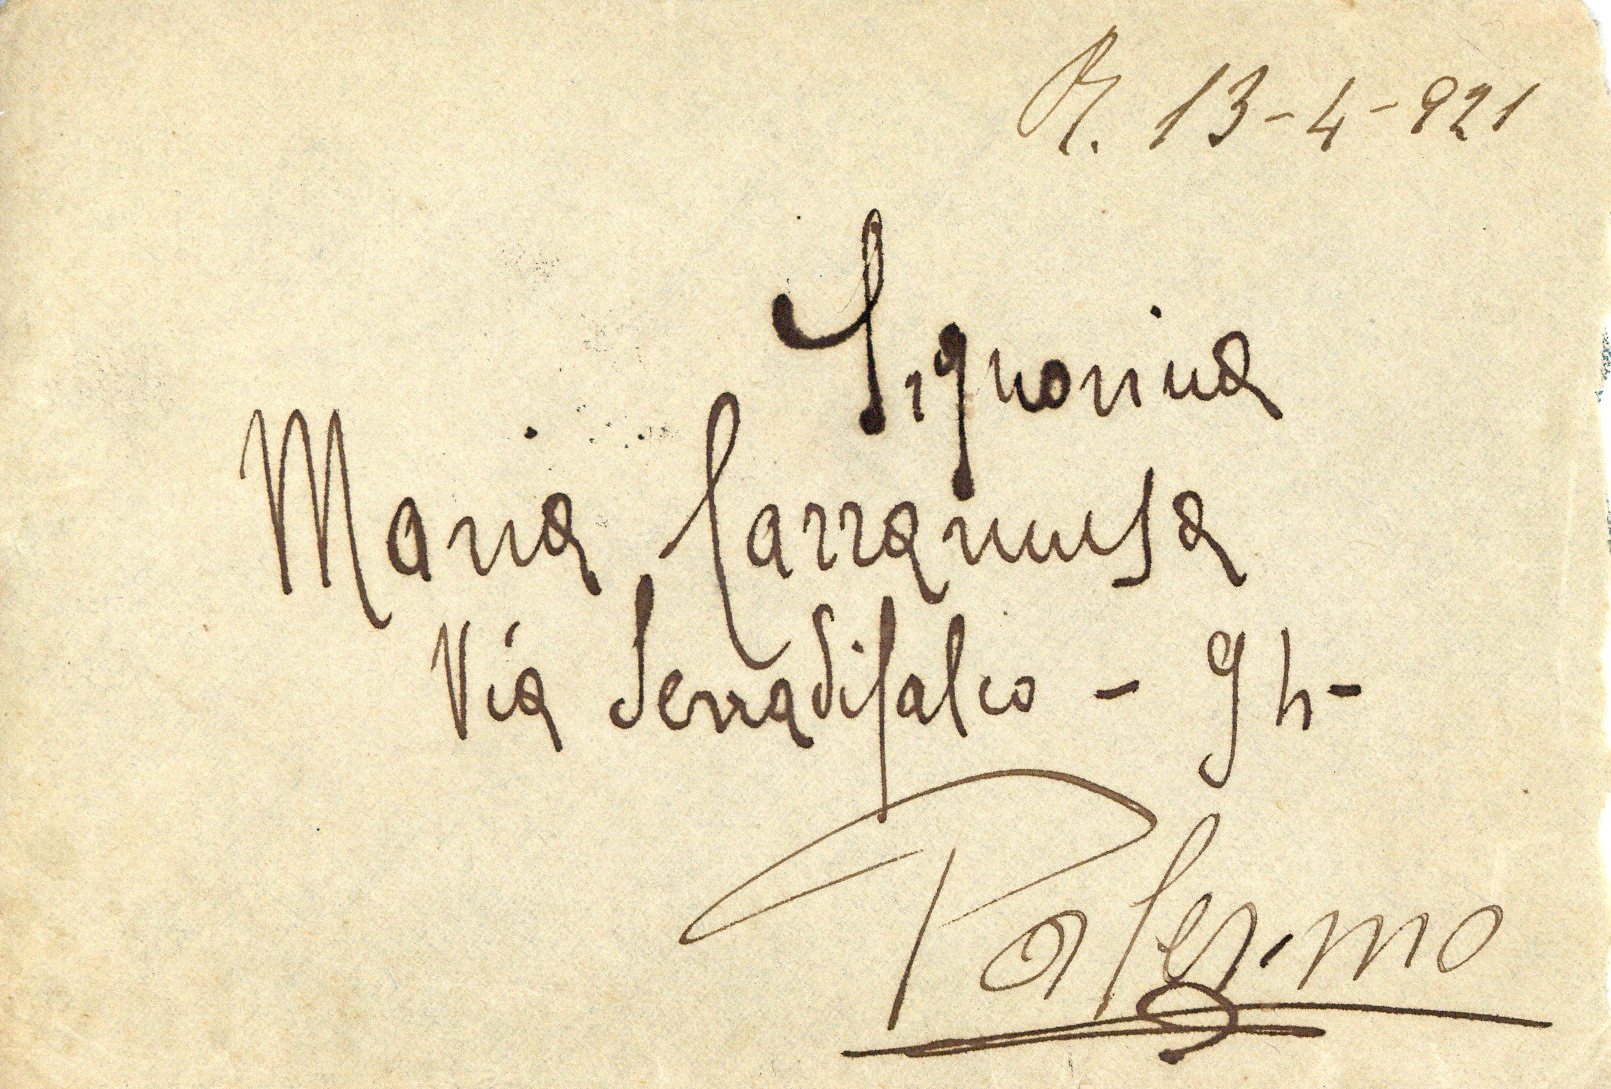 R. 13-4-921
Signorina
Maria Carramusa
Via Serradifalco - 94-
Palermo